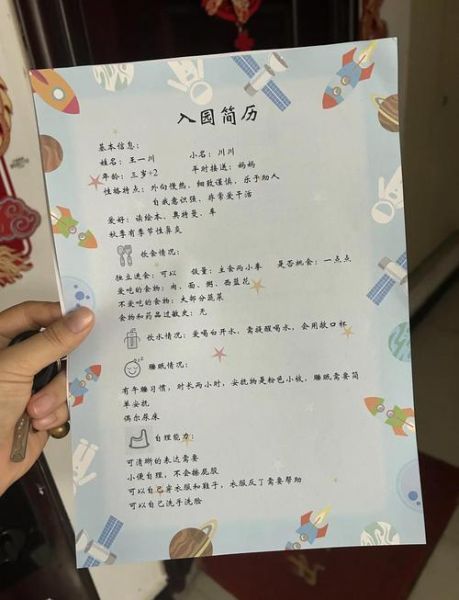 入园简历
基本信息:
姓名: 王一川 小名: 川川
年龄: 三岁+2 平时接送: 妈妈
性格特点: 外向慢热, 细致谨慎, 乐于助人
自我意识强, 非常爱干活
爱好: 读绘本、奥特曼、车
秋季有季节性鼻炎
饮食情况:
独立进食: 可以 饭量: 主食两小拳 是否挑食: 一点点
爱吃的食物: 肉、面、粥、西蓝花
不爱吃的食物: 大部分蔬菜
食物和药品过敏史: 无
饮水情况: 爱喝白开水, 需提醒喝水, 会用敞口杯
睡眠情况:
有午睡习惯, 时长两小时, 安抚物是粉色小被, 睡眠需要简
单安抚
偶尔尿床
自理能力:
可清晰的表达需要
小便自理, 不会擦屁股
可以自己穿衣服和鞋子, 衣服反了需要帮助
可以自己洗手洗脸